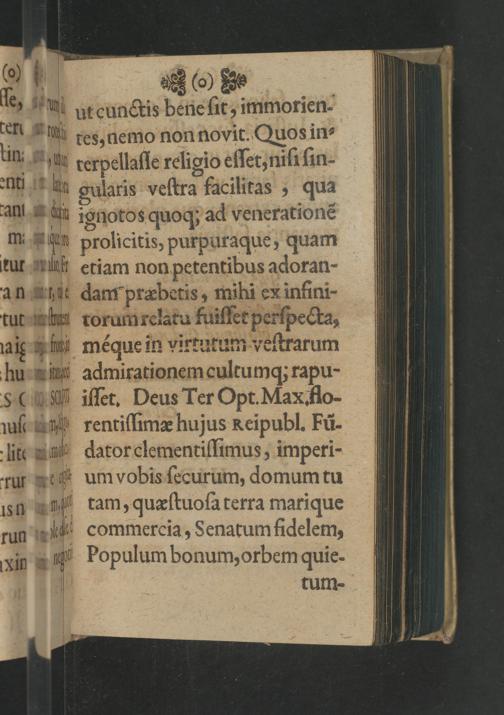 (o)
ut cunctis bene sit, immorien-
tes, nemo non novit. Quos in-
terpellasse religio esset, nisi sin-
gularis vestra facilitas, qua
ignotos quoq; ad venerationē
prolicitis, purpuraque, quam
etiam non petentibus adoran-
dam præbetis, mihi ex infini-
torum relatu fuisset perspecta,
méque in virtutum vestrarum
admirationem cultumq; rapu-
isset. Deus Ter Opt. Max. flo-
rentissimæ hujus Reipubl. Fū-
dator clementissimus, imperi-
um vobis securum, domum tu
tam, quæstuosa terra marique
commercia, Senatum fidelem,
Populum bonum, orbem quie-
tum-